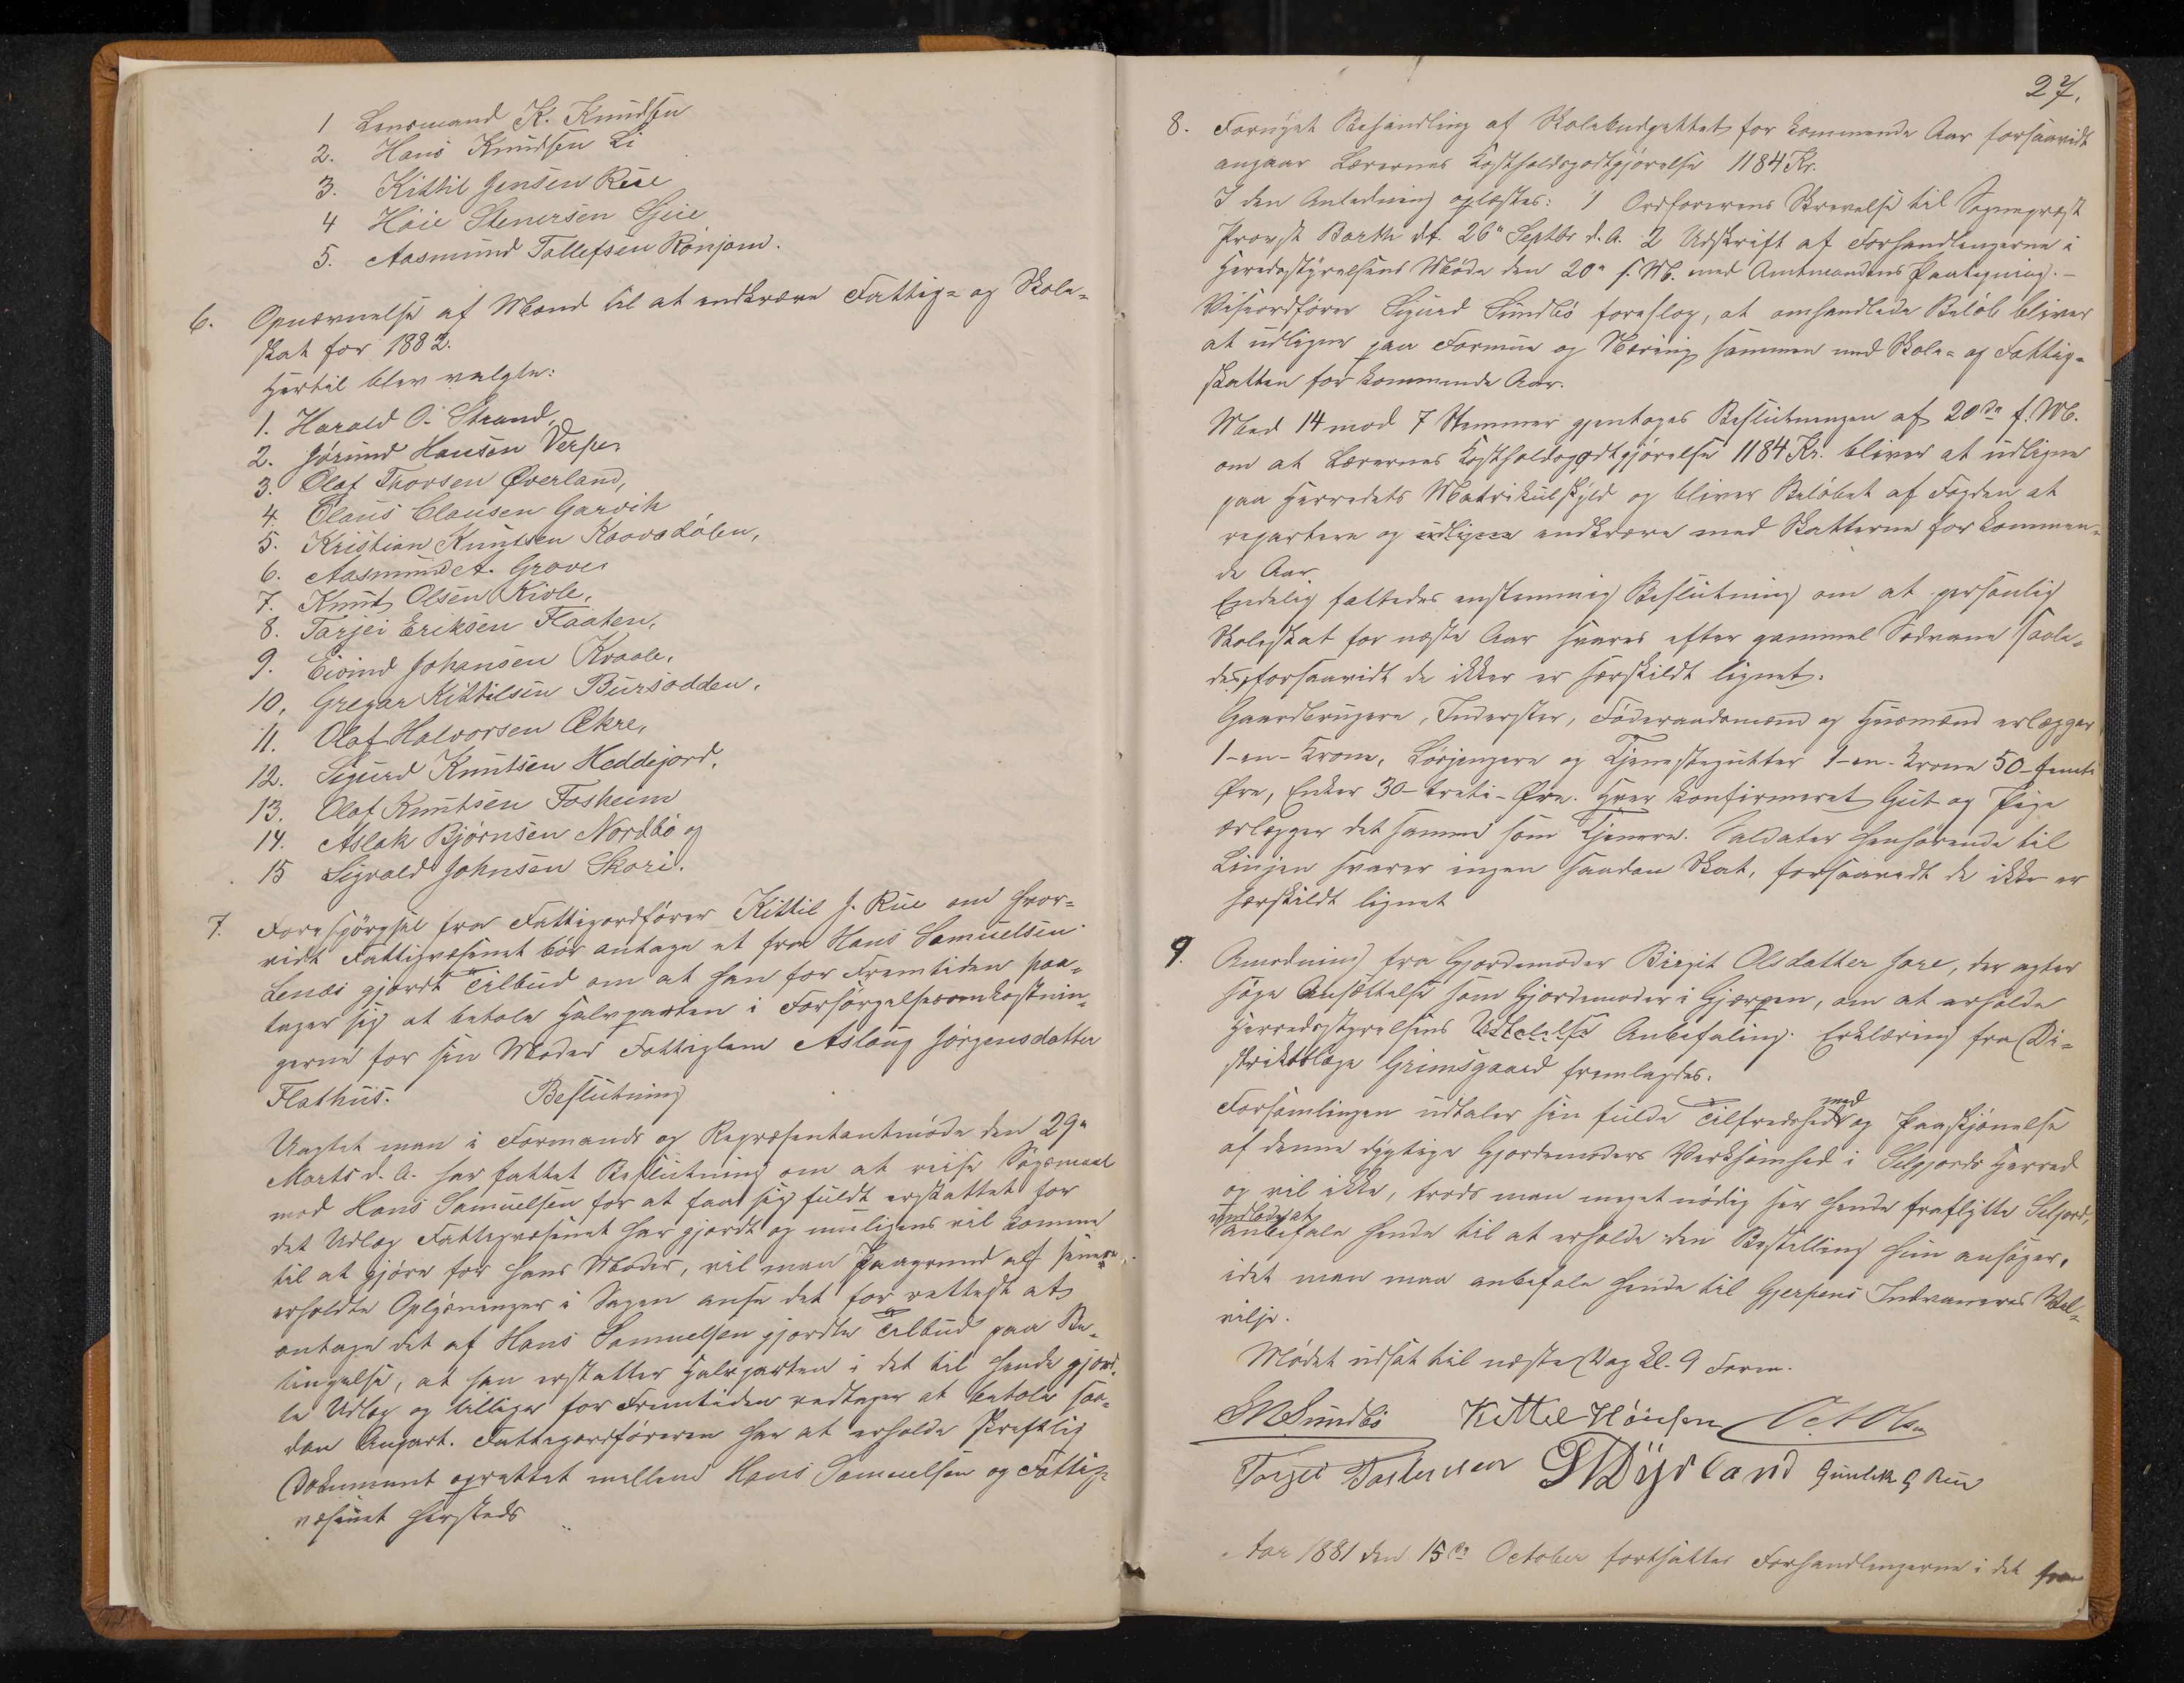 1 Lensmand K. Knudsen
2. Hans Knudsen Li
3. Kittil Jensen Rue
4 Høie Stenersen Skeie
5. Aasmund Tallefsen Rønjom.
6. Opnævnelse af Mænd til at indkræve Fattig- og Skole-
skat for 1882.
Hertil blev valgte:
1. Harald O. Strand,
2. Jørund Hansen Verpe,
3. Olaf Thorsen Øverland,
4. Olaus Clausen Garvik
5. Kristian Knutsen Kaavodølen,
6. Aasmund A. Grave,
7. Knut Olsen Kivle,
8. Tarjei Eriksen Flaaten,
9. Eivind Johansen Kvaale,
10. Gregar Kittilsen Bursodden,
11. Olaf Halvorsen Ækre,
12. Sigurd Knutsen Heddejord,
13. Olaf Knutsen Fosheim
14. Aslak Bjørnsen Nordbø og
15 Sigvald Johnsen Skori.
7. Forespørgsel fra Fattigordfører Kittil J. Rue om hvor-
vidt Fattigvæsenet bør antage et fra Hans Samuelsen
gjordt Tilbud om at han for Fremtiden paa-
tager sig at betale Halvparten i Forsørgelsesomkostnin-
gerne for sin Moder Fattiglem Aslaug Jørgensdatter
Flathus. Beslutning
Uagtet man i Formands og Repræsentantmøde den 29de
Marts d. A. har fattet Beslutning om at reise Søgsmaal
mod Hans Samuelsen for at faa sig fuldt erstattet for
det Udlæg Fattigvæsenet har gjordt og muligens vil komme
til at gjøre for hans Moder, vil man Paagrund af senere
erholdte Oplysninger i Sagen anse det for rettest at
antage det af Hans Samuelsen gjordte Tilbud paa Be-
tingelse, at han erstatter Halvparten i det til hende gjord-
te Udlæg og tillige for Fremtiden vedtager at betale saa-
dan Anpart. Fattigordføreren har at erholde skriftlig
Dokument oprettet mellem Hans Samuelsen og Fattig-
væsenet hersteds
27.
8. Fornyet Behandling af Skolebudgettet for kommende Aar forsaavidt
angaar Lærernes Kostholdsgodtgjørelse 1184 Kr.
I den Anledning oplæstes: 1 Ordførerens Skrivelse til Sognepræst
Provst Barth dt. 26de Septbr d. A. 2 Udskrift af Forhandlingerne i
Heredsstyrelsens Møde den 20de f. M. med Amtmandens Paategning. —
Viseordfører Sigurd Sundbø foreslog, at omhandlede Beløb bliver
at udligne paa Formue og Næring sammen med Skole- og Fattig-
skatten for kommende Aar.
Med 14 mod 7 Stemmer gjentoges Beslutningen af 20de f. M.
om at Lærernes Kostholdsgodtgjørelse 1184 Kr. bliver at udligne
paa Herredets Matrikulskyld og bliver Beløbet af Fogden at
repartere og udligne indkræve med Skatterne for kommen-
de Aar
Endelig fattedes enstemmig Beslutning om at personlig
Skoleskat for næste Aar svares efter gammel Sedvane saale-
des, forsaavidt de ikke er særskildt lignet.
Gaardbrugere, Inderster, Føderaadsmænd og Husmænd erlægger
1-en-Krone, Løsjengere og Tjenestegutter 1-en-Krone 50-femti
Øre, Enker 30-treti-Øre. Hver konfirmeret Gut og Pige
erlægger det samme som Tjenere. Soldater henhørende til
Linjen svarer ingen saadan Skat, forsaavidt de ikke er
særskildt lignet
9. Anmodning fra Gjordemoder Birgit Olsdatter Jore, der agter
søge Ansættelse som Gjordemoder i Gjerpen, om at erholde
Herredsstyrelsens Udtalelse Anbefaling. Erklæring fra Di-
striktslæge Grimsgaard fremlagdes.
Forsamlingen udtaler sin fulde Tilfredshed med og Paaskjønnelse
af denne dygtige Gjordemoders Verksomhed i Seljords Herred
og vil ikke, trods man meget nødig ser hende fraflytte Seljord,
undlade at anbefale hende til at erholde den Bestilling hun ansøger,
idet man maa anbefale hende til Gjerpens Indvaaneres Vel-
vilje.
Mødet udsat til næste Dag Kl. 9 Form.
S M Sundbø Kittel Høiesen O A Olsen
Torjei Tostensen G H Dyrland Gunlek G Rue
Aar 1881 den 15de October fortsattes Forhandlingerne i det